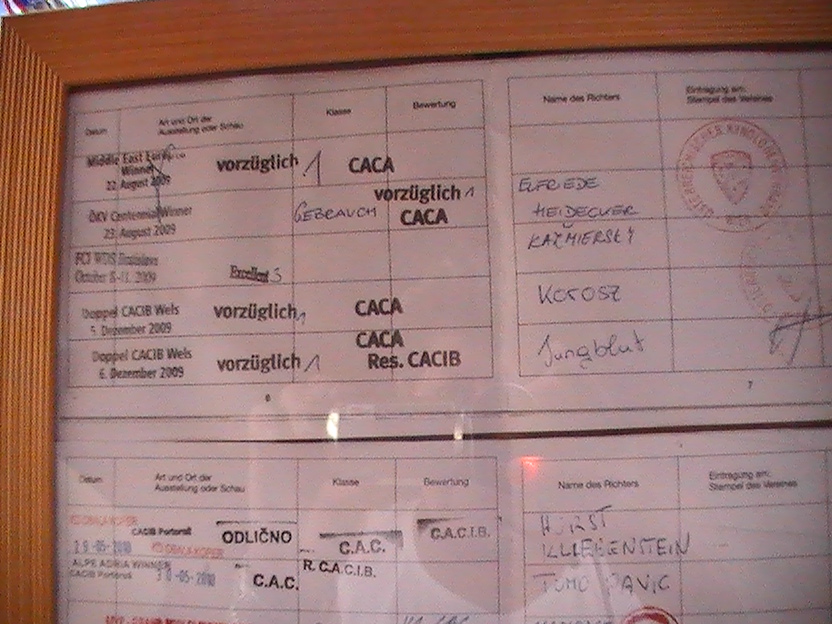 Datum Art und Ort der Ausstellung oder Schau Klasse Bewertung Name des Richters Eintragung am: Stempel des Vereines
Middle East
Winner vorzüglich 1 CACA
22. August 2009
vorzüglich 1 ELFRIEDE
ÖKV Centennial Winner GEBRAUCH CACA HEIDECKER
23. August 2009
KAZMIERSKY
FCI WDS Bratislava
October 2009 Excellent 3
Doppel CACIB Wels vorzüglich 1 CACA Korosz
5. Dezember 2009
CACA
Doppel CACIB Wels vorzüglich 1 Res. CACIB Jungblut
6. Dezember 2009
6 7
Datum Art und Ort der Ausstellung oder Schau Klasse Bewertung Name des Richters Eintragung am: Stempel des Vereines
CACIB Portorož ODLIČNO C.A.C. C.A.C.I.B. HORST
KLIEBENSTEIN
ALPE ADRIA WINNER R. C.A.C.I.B.
CACIB Portorož C.A.C. TOMO PAVIC